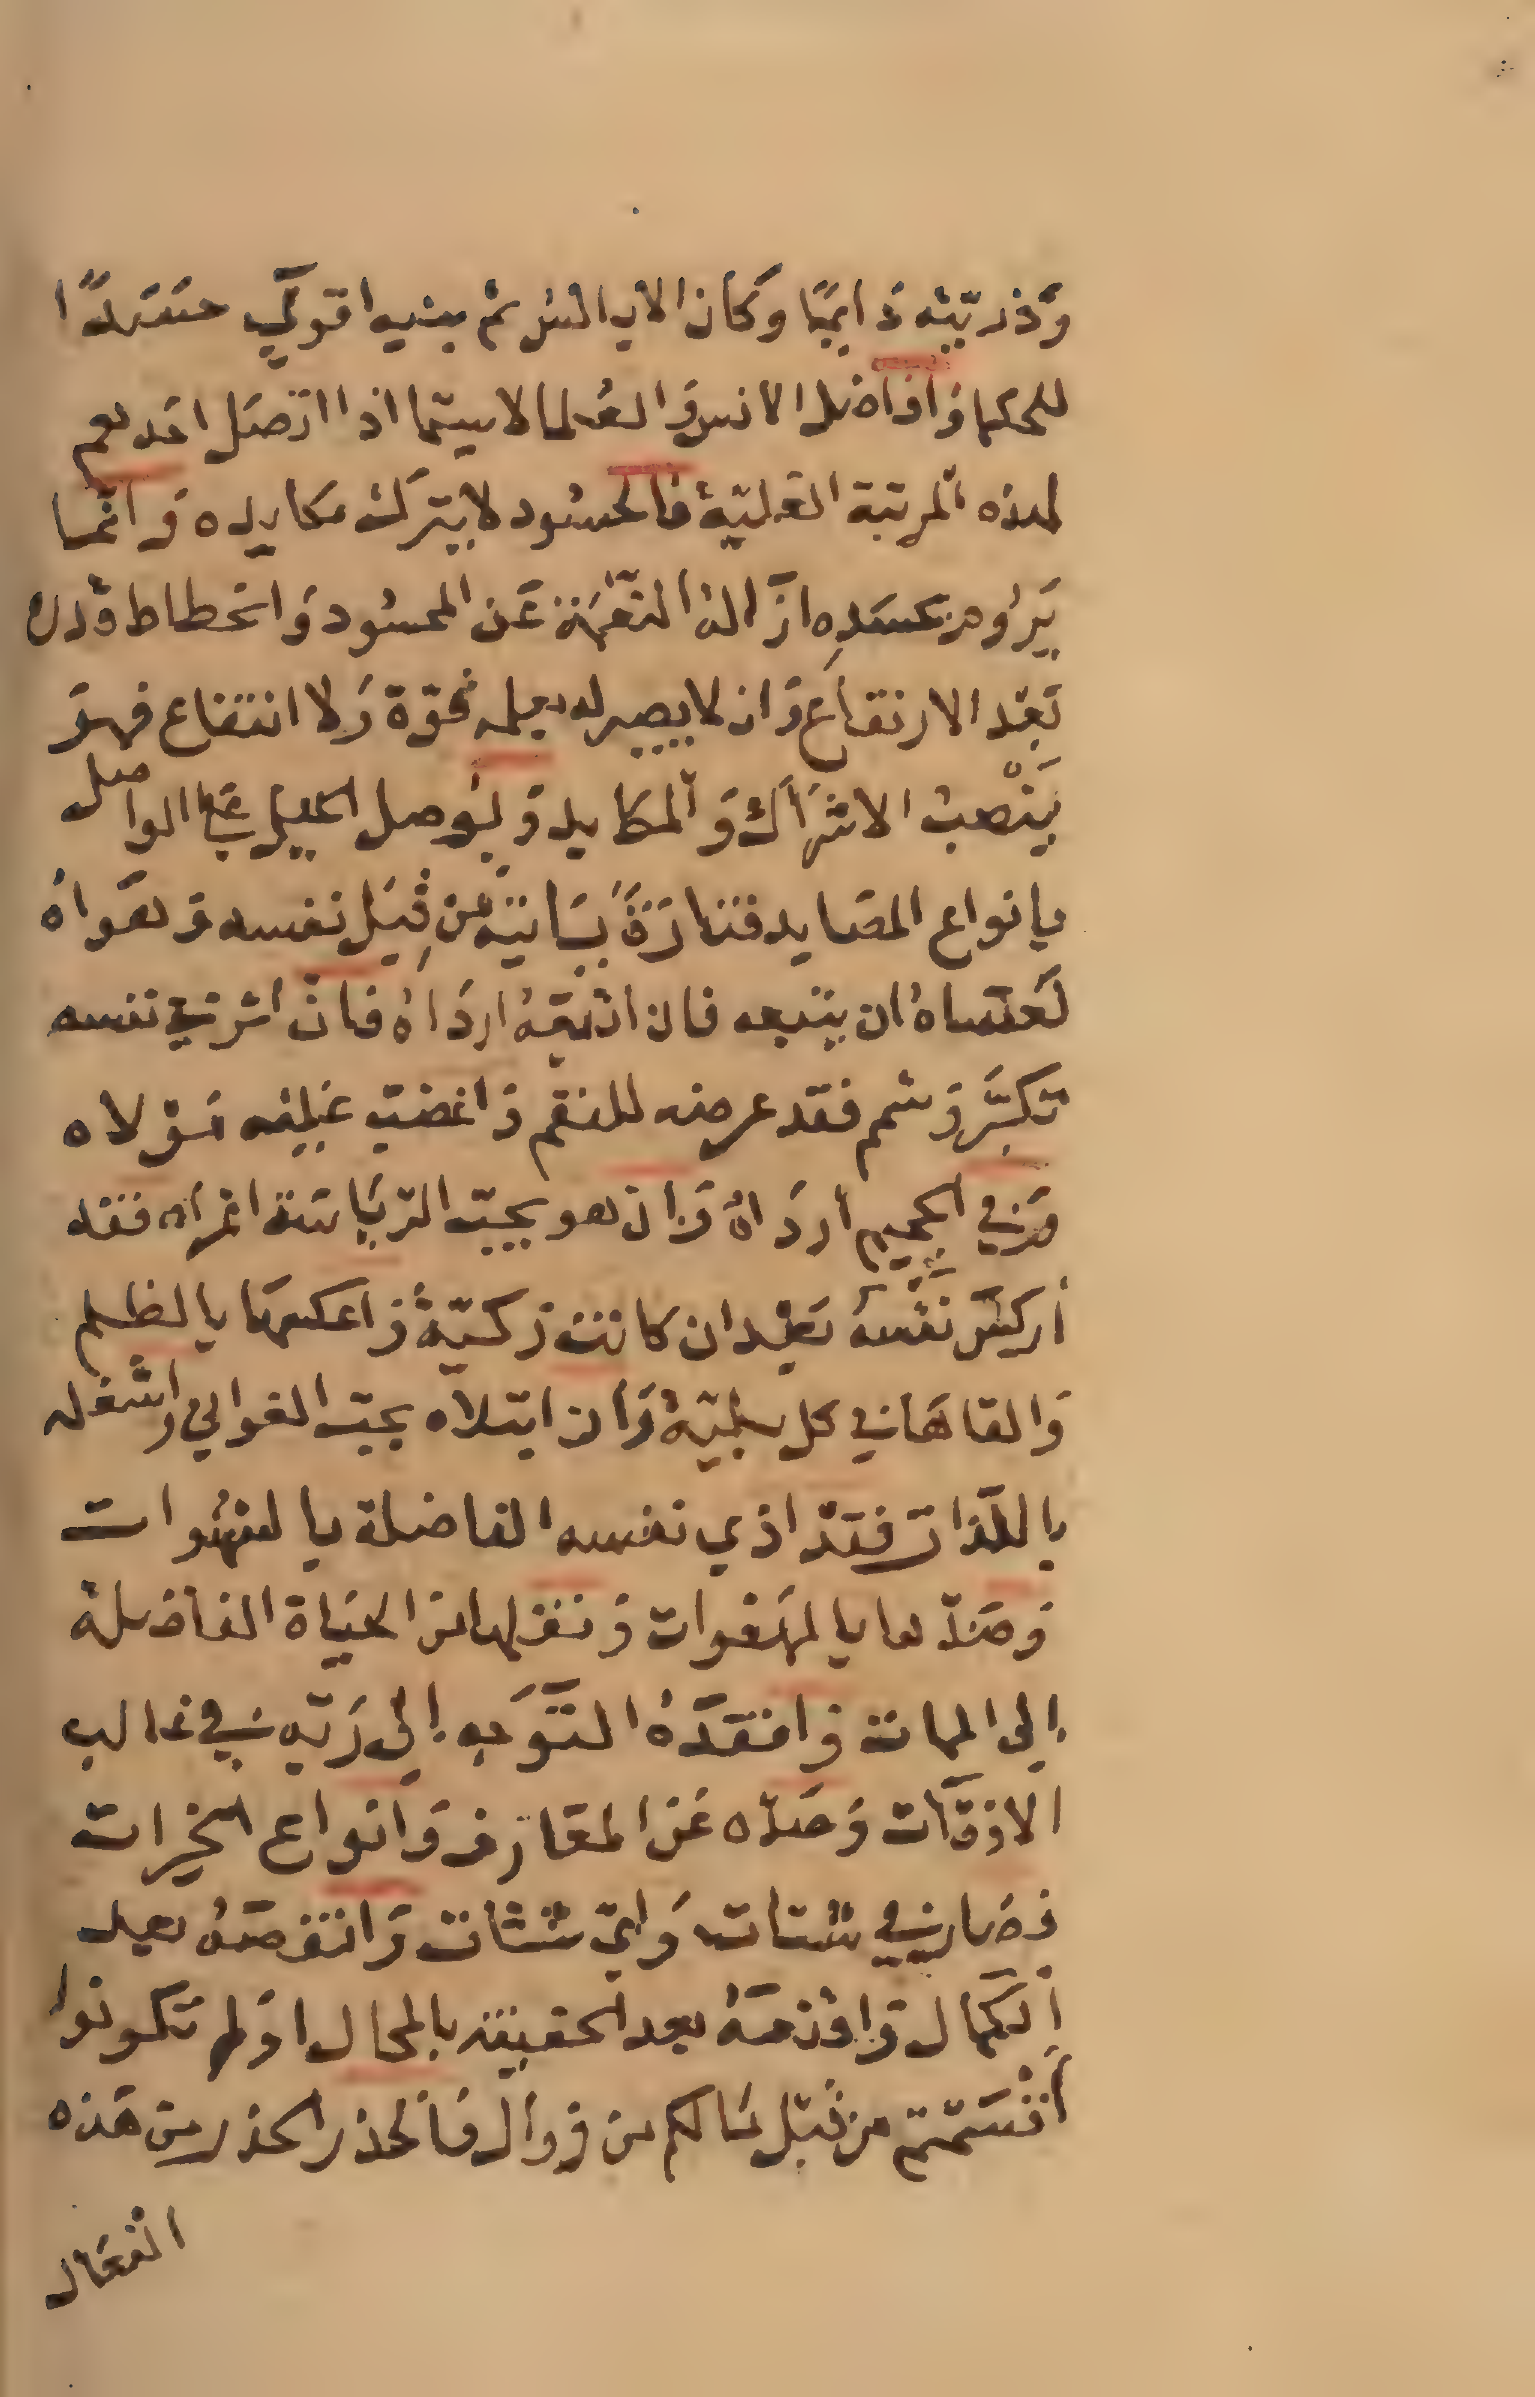 وَذريّته دَايمًا وكَان الاب الشر ثم بنيه اقوي حسَدًا
للحكما وَافاضل الانس وَالعُلما لا سيّما اذا اتّصَل احَدهم
لهذه المرتبة العَليّة فالحسُود لا يترك مكايده وَانّما
يَرُوم بحسَدِه ازَالة النّعمَة عَن المحسُود وَانحطاط قدره
بَعْد الارتفاع وَان لا يصير له بعلمه نخوّة وَلا انتفاع فهوَ
يَنْصب الاشرَاك وَالمكايد وَليوصل الحيل على الواصل
بانواع المصَايد فتارَةً يَاتيه من قِبَل نفسه وَهَواهُ
لعَسَاهُ ان يتبعه فان اتبعَهُ اردَاهُ فان اثر في نفسه
تكبّرَ وَشمم فقد عرضه للنقم وَاغضب عَليْه مَوْلاه
وَفي الجحيم أردَاهُ وَان هو بحبّ الرّيَاسَة اغرَاه فقد
أركسَ نَفْسَهُ بَعْد ان كانت زكيّةً وَاعكسهَا بالظلم
وَالقاهَا في كل بليّةٍ وَان ابتلاه بحبّ الغواني وَاشغله
باللّذات فقد اذي نفسه الفاضلة بالشهوات
وَصَدّها بالهَفوات وَنقلها من الحيَاة الفاضلة
إلى الممات وَافقدَهُ التوَجه إلى رَبّه في غالب
الاوْقات وَصَدّه عَن المعَارف وَانواع الخيرات
فصَار في شتات وَايّ شتات وَانتقصَهُ بعد
الكمال وَاوْقعَهُ بعد الحقيقة بالمحال اوَلم تكونوا
أقْسَمْتم من قَبْل مَا لكم من زوال فالحذر الحذر من هَذه
الفعَال